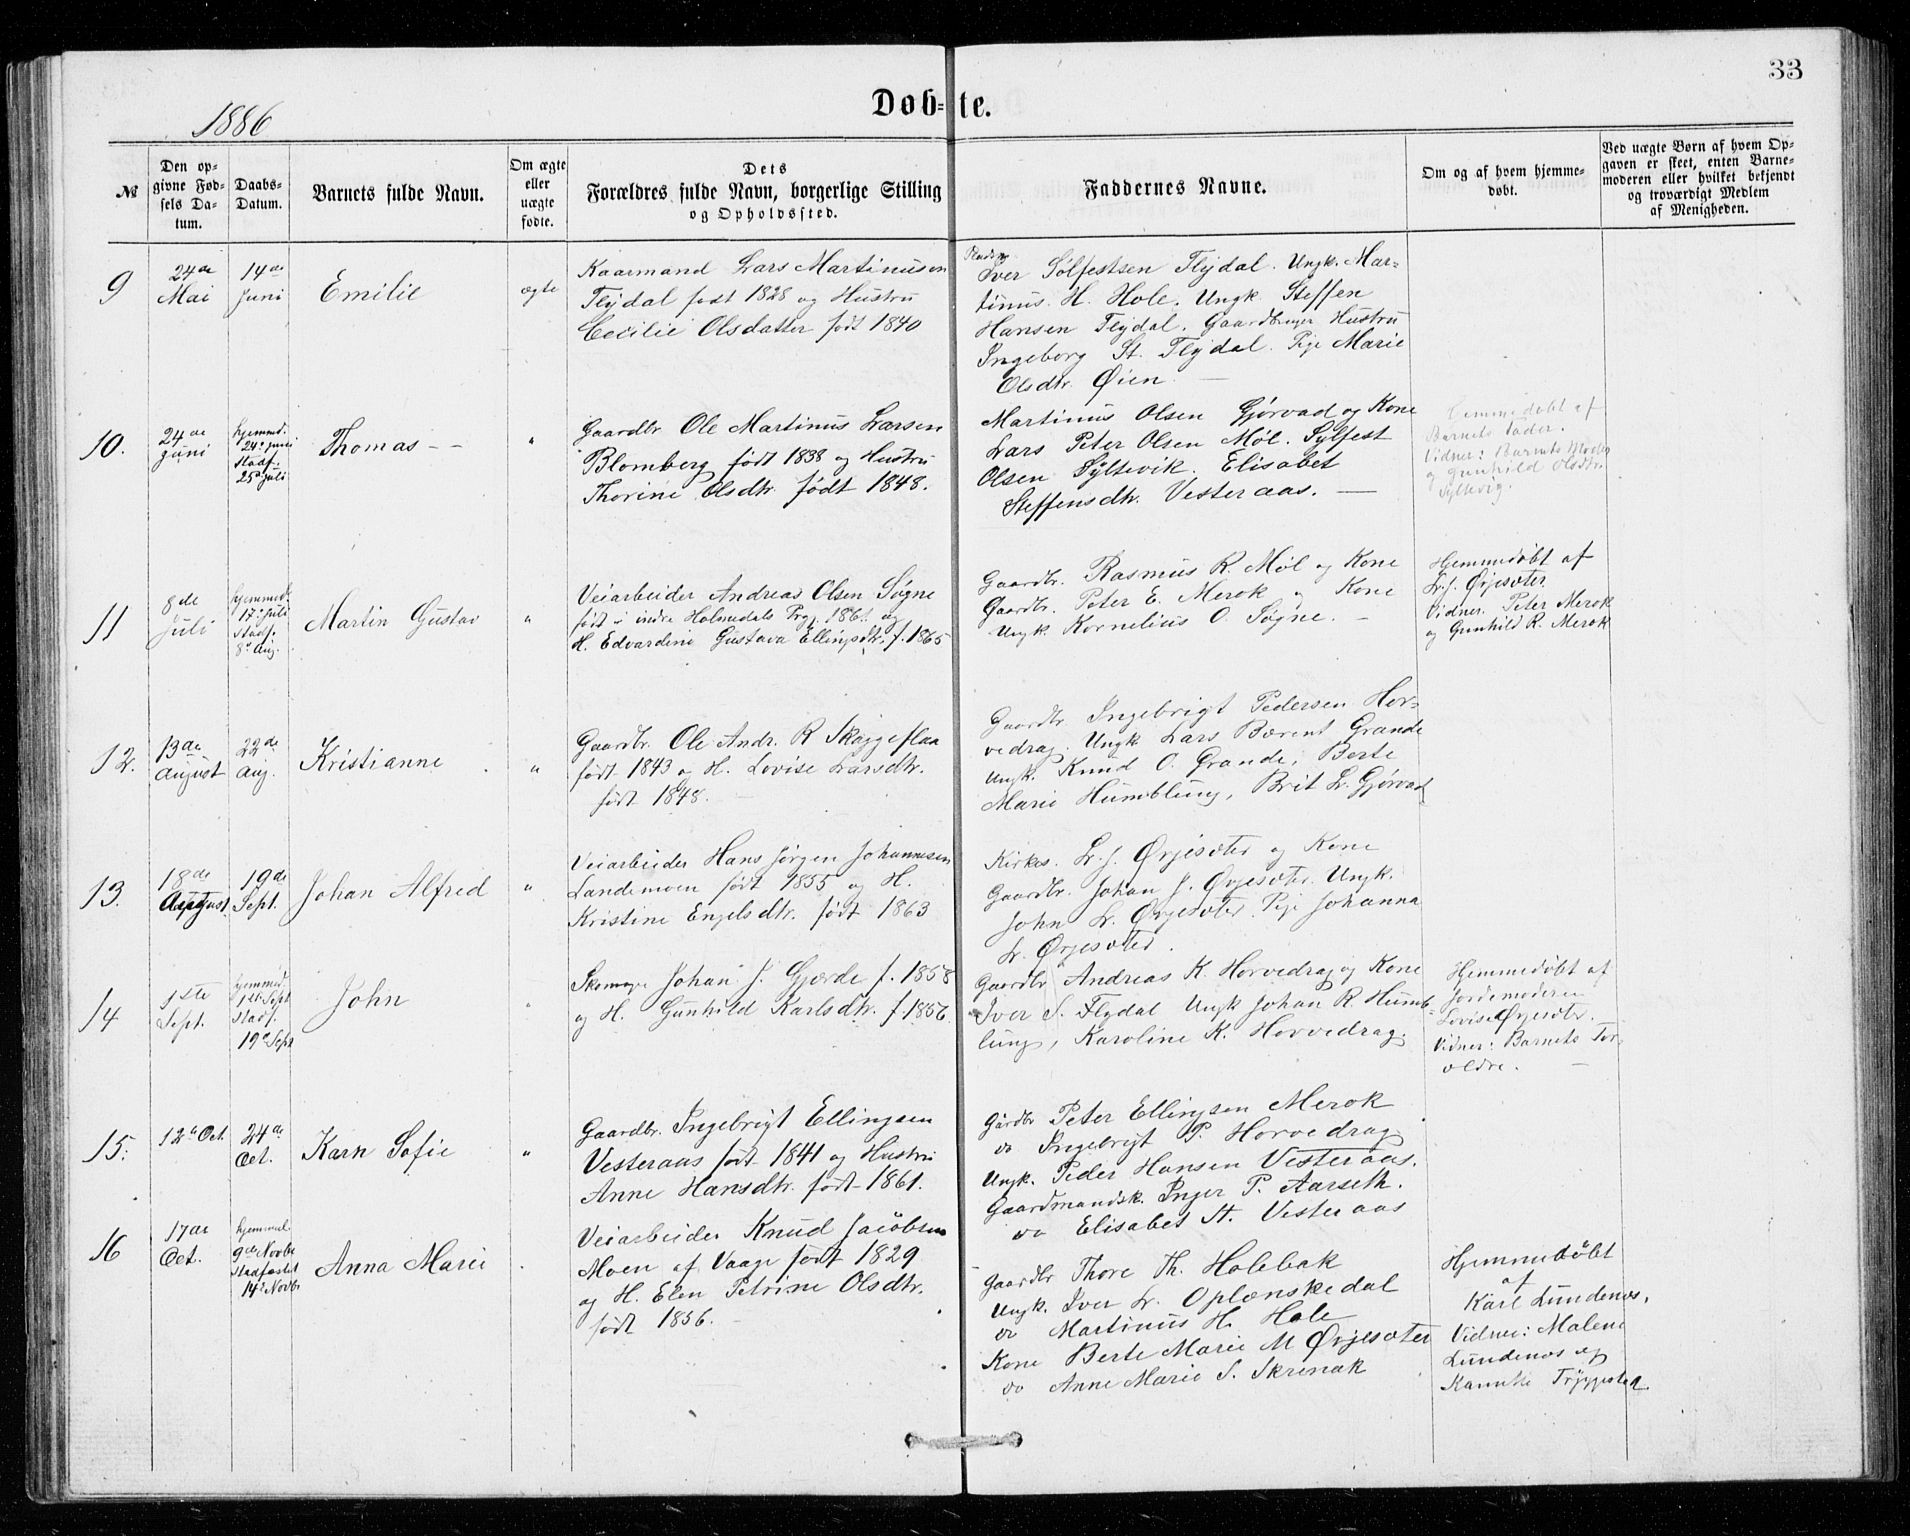 33
Døb-te.
1886
№
Den op-
givne Fød-
sels Da-
tum.
Daabs-
Datum.
Barnets fulde Navn.
Om ægte
eller
uægte
fødte.
Dets
Forældres fulde Navn, borgerlige Stilling
og Opholdssted.
Faddernes Navne.
Om og af hvem hjemme-
døbt.
Ved uægte Børn af hvem Op-
gaven er skeet, enten Barne-
moderen eller hvilket bekjendt
og troværdigt Medlem
af Menigheden.
9
24de
Mai
14de
Juni
Emilie
ægte
Kaarmand Lars Martinusen
Flydal født 1828 og Hustru
Cecilie Olsdatter født 1840
Iver Sølfestsen Flydal. Ungk. Mar-
tinus H. Hole. Ungk. Steffen
Hansen Flydal. Gaardbruger Hustru
Ingeborg St. Flydal. Pige Marie
Olsdtr. Øien. —
10.
24de
Juni
hjemmd.
24de Juni
Stadf.
25de Juli
Thomas –
"
Gaardbr Ole Martinus Larsen
Blomberg født 1838 og Hustru
Thorine Olsdtr. født 1848.
Martinus Olsen Gjørvad og Kone
Lars Peter Olsen Møl. Sylfest
Olsen Syltevik. Elisabet
Steffensdtr. Vesteraas. —
Hjemmedøbt af
Barnets Fader.
Vidner: Barnets Moder
og Gunhild Olsdtr.
Syltevig.
11
8de
Juli
hjemmed.
17de Juli
Stadf.
8de Aug.
Martin Gustav
"
Veiarbeider Andreas Olsen Søgne
født i indre Holmedals Prgj. 1861. og
H. Edvardine Gustava Ellingsdtr. f. 1865
Gaardbr. Rasmus R. Møl og Kone
Gaardbr. Peter E. Merok og Kone
Ungk. Kornelius O. Søgne. –
Hjemmedøbt af
L. J. Ørjesæter
Vidner. Peter Merok
og Gunhild R. Merok
12.
13de
August
22de
Aug.
Kristianne
"
Gaardbr. Ole Andr. R Skaggeflaa
født 1843 og H. Lovise Larsdtr.
født 1848. –
Gaardbr. Ingebrigt Pedersen Hor-
vedrag. Ungk Lars Bærent Grande
Ungk. Knud O. Grande, Berte
Marie Humblung, Brit L. Gjørvad
13.
18de
August
19de
Sept.
Johan Alfred
"
Veiarbeider Hans Jørgen Johannesen
Landemoen født 1855 og H.
Kristine Engelsdtr. født 1863
Kirkes. L. J. Ørjesæter og Kone
Gaardbr. Johan J. Ørjesæter. Ungk.
John L. Ørjesæter. Pige Johanna
L. Ørjesæter.
14
1ste
Sept.
hjemmed.
1ste Sept
Stadf.
19de Sept
John
"
Skomager Johan J. Gjærde f. 1858
og H. Gunhild Karlsdtr. f 1856.
Gaardbr Andreas K. Horvedrag og Kone
Iver S. Flydal Ungk Johan R. Humb-
lung, Karoline K. Horvedrag.
Hjemmedøbt af
Jordemoderen
Lovise Ørjesæter.
Vidner: Barnets For-
ældre. —
15.
12de Oct.
24de
Oct.
Karn Sofie
"
Gaardbr. Ingebrigt Ellingsen
Vesteraas født 1841 og Hustru
Anne Hansdtr. født 1861.
Gårdbr Peter Ellingsen Merok
do Ingebrigt P. Horvedrag
Ungk. Peder Hansen Vesteraas.
Gaardmandsk. Inger P. Aarseth.
do Elisabet St. Vesteraas
16
17de
Oct.
hjemmed
9de Novbr
Stadfæstet
14de Novbr
Anna Marie
Veiarbeider Knud Jacobsen
Moen af Vaage født 1829
og H. Elen Petrine Olsdtr.
født 1856. –
Gaardbr Thore Th. Holebak
Ungk. Iver L. Oplænskedal
do Martinus H. Hole
Kone Berte Marie M Ørjesæter
do Anne Marie S. Skrenak
Hjemmedøbt
af
Karl Lundenæs.
Vidner: Malene
Lundenæs og